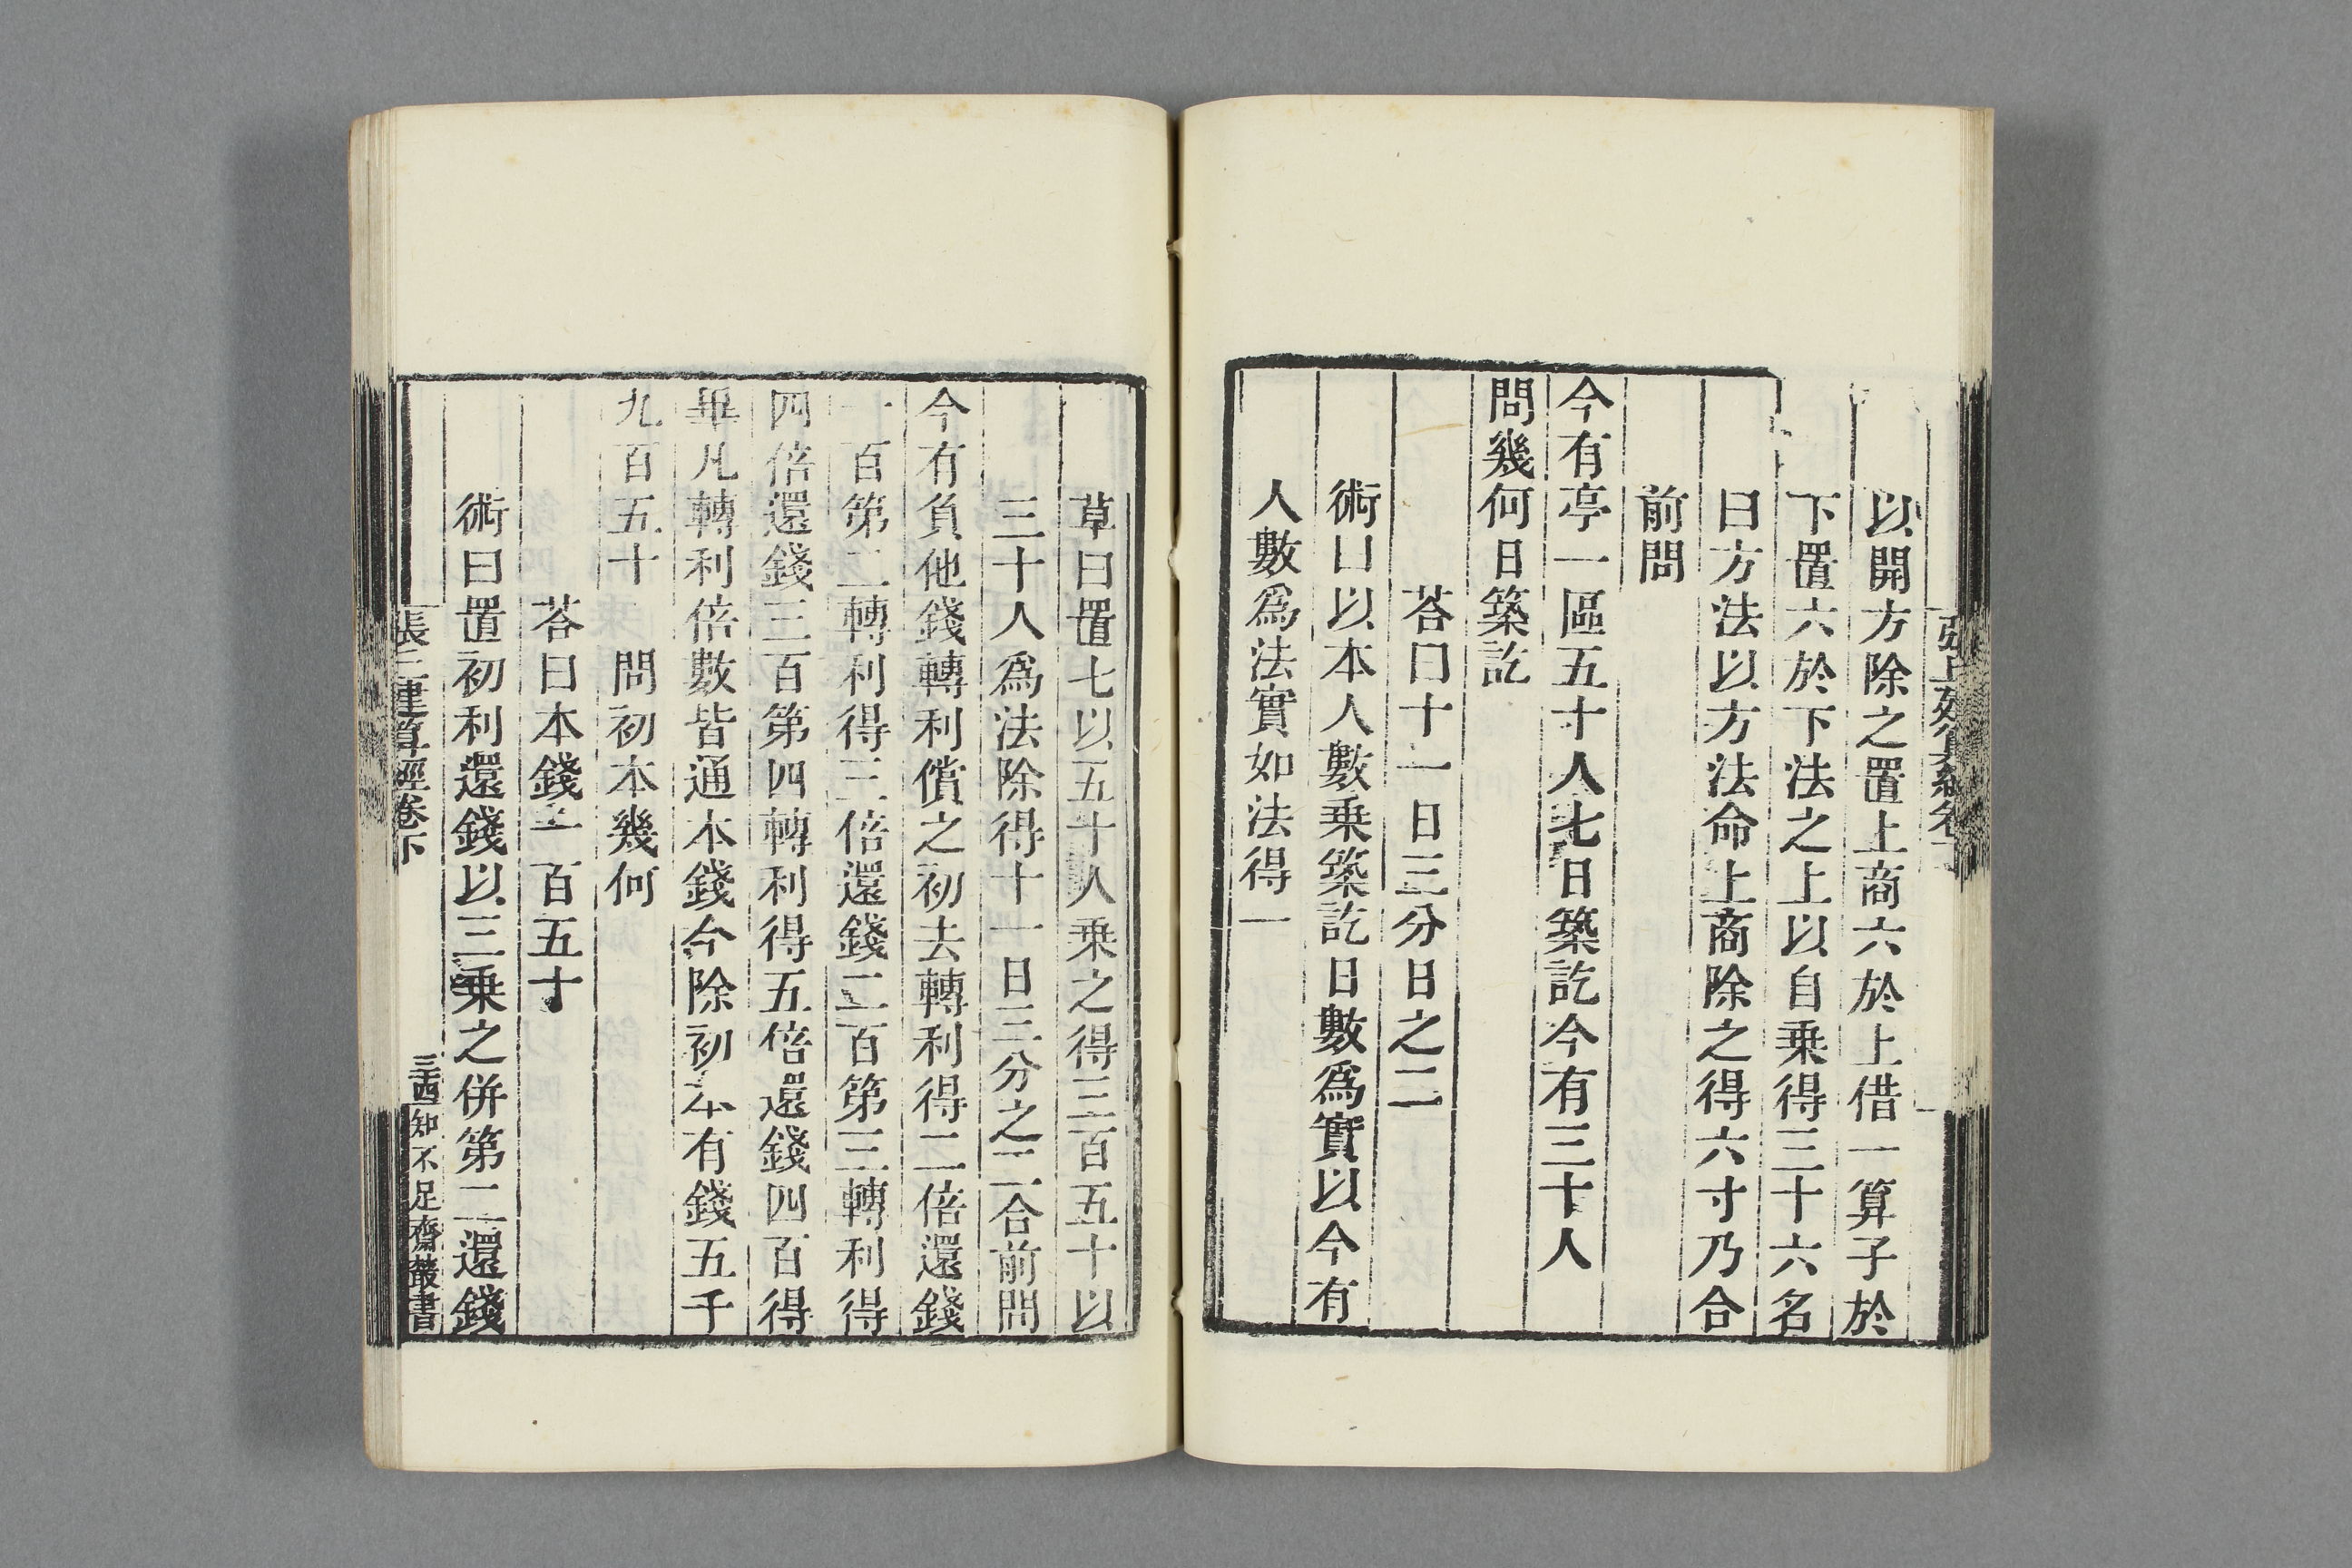 以開方除之置上商六於上借一算子於
下置六於下法之上以自乗得三十六名
曰方法以方法命上商除之得六寸乃合
前問
今有亭一區五十人七日築訖今有三十人
問幾何日築訖
荅曰十一日三分日之二
術曰以本人數乗築訖日數爲實以今有
人數爲法實如法得一
草曰置七以五十人乗之得三百五十以
三十人爲法除得十一日三分之二合前問
今有負他錢轉利償之初去轉利得二倍還錢
一百第二轉利得三倍還錢二百第三轉利得
四倍還錢三百第四轉利得五倍還錢四百得
畢凡轉利倍數皆通本錢今除初本有錢五千
九百五十 問初本幾何
荅曰本錢一百五十
術曰置初利還錢以三乗之併第二還錢
張丘建算經卷下 知不足齋叢書